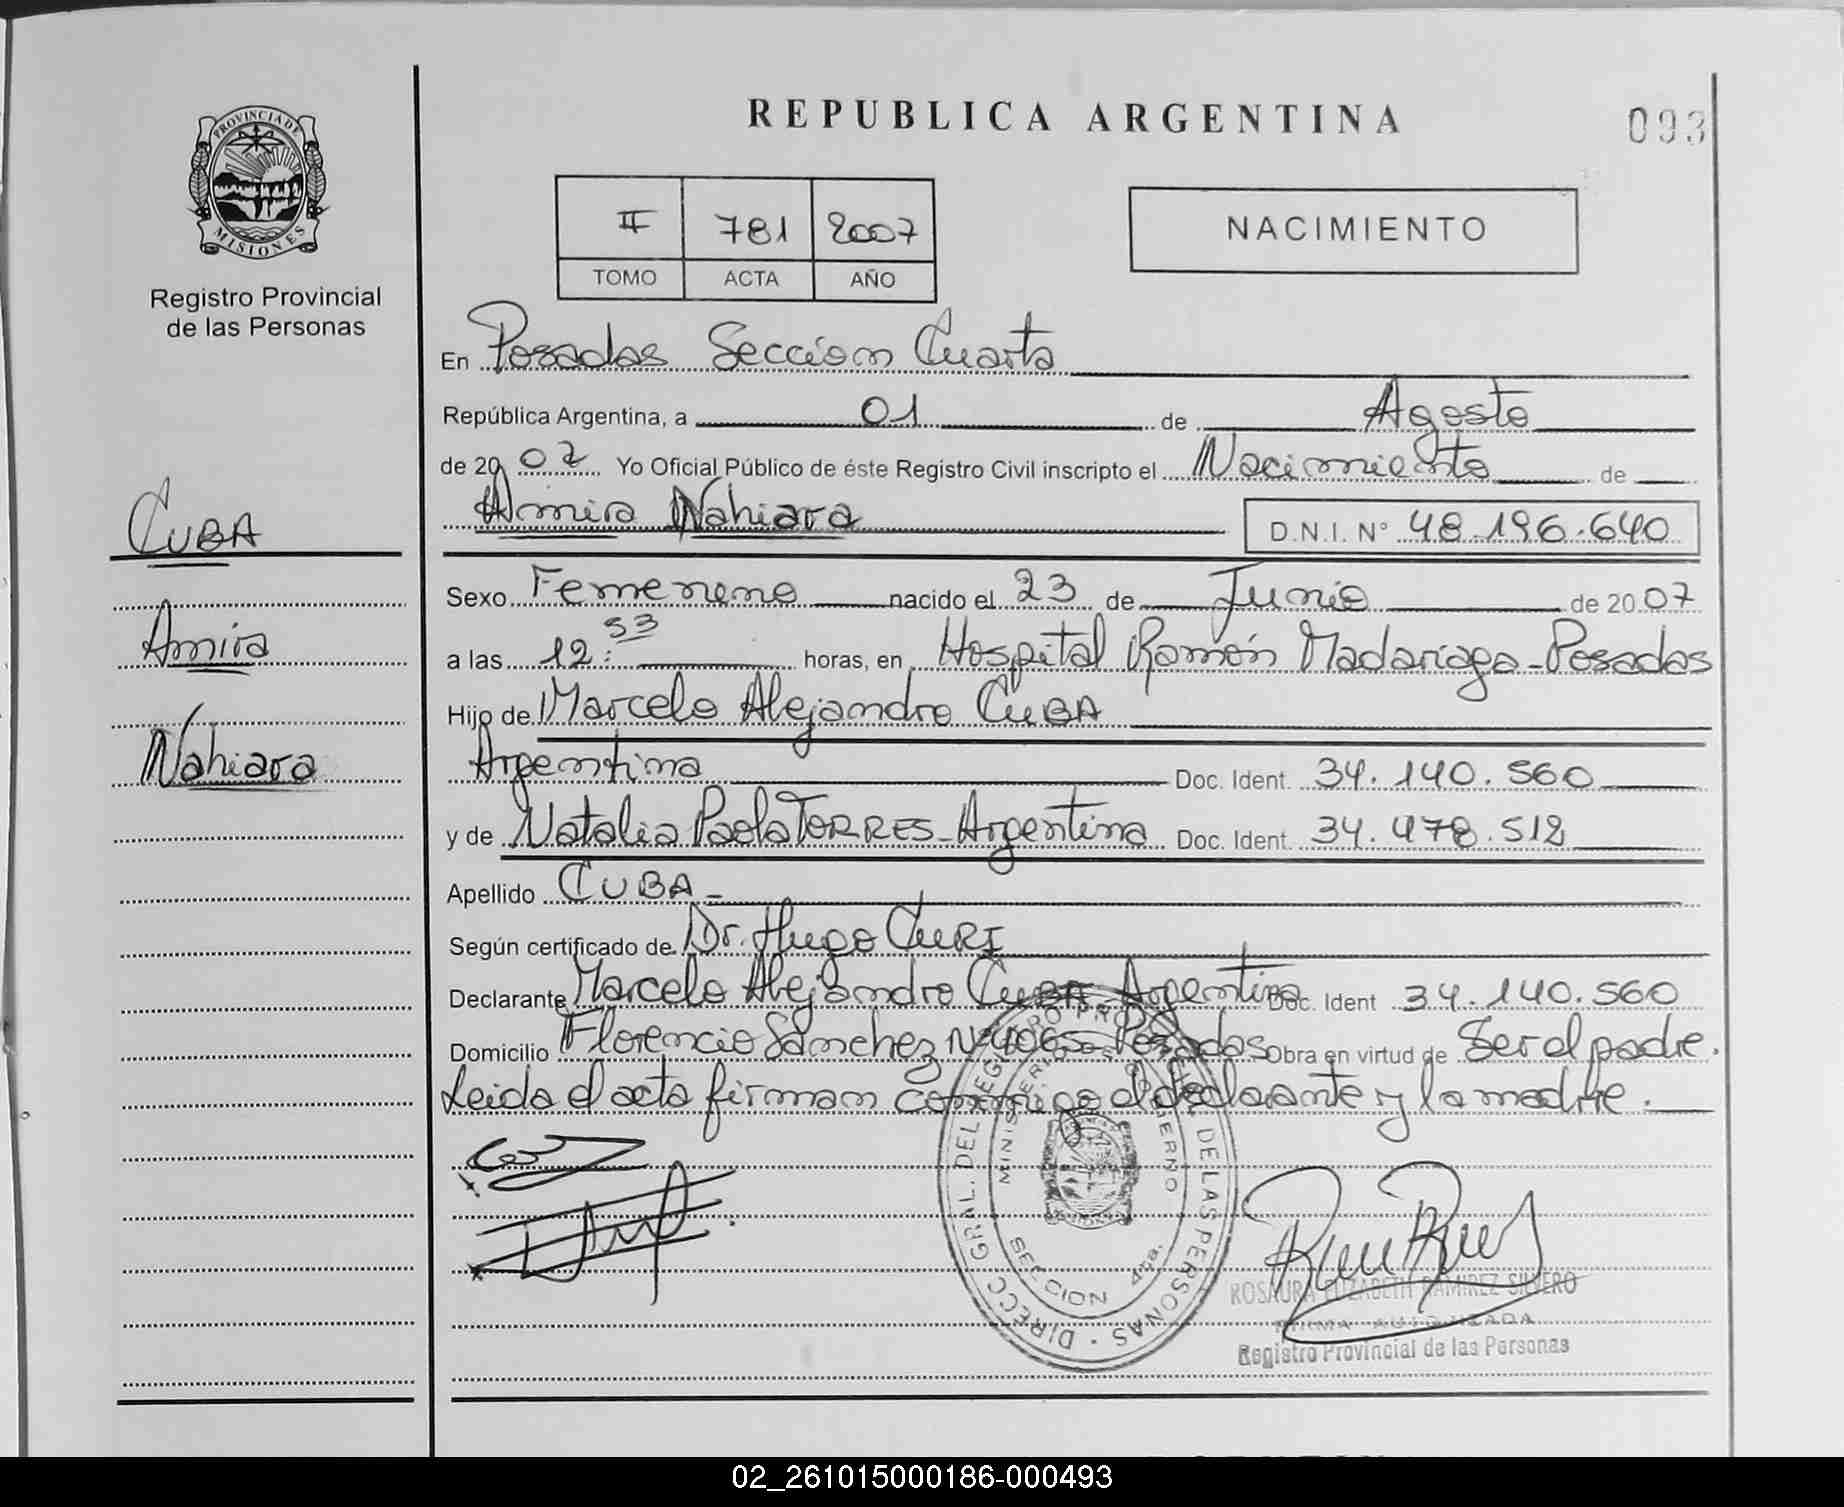 REPUBLICA ARGENTINA
093
PROVINCIA DE
MISIONES
Registro Provincial
de las Personas
II 781 2007
TOMO ACTA AÑO
NACIMIENTO
En Posadas Sección Cuarta
República Argentina, a 01 de Agosto
de 2007 Yo Oficial Público de éste Registro Civil inscripto el Nacimiento de
Amira Nahiara D.N.I. N° 48.196.640
CUBA
Amira
Nahiara
Sexo Femenino nacido el 23 de Junio de 2007
a las 12:53 horas, en Hospital Ramón Madariaga - Posadas
Hijo de Marcelo Alejandro CUBA
Argentina Doc. Ident. 34.140.560
y de Natalia Paola TORRES - Argentina Doc. Ident. 34.478.512
Apellido CUBA -
Según certificado de Dr. Hugo CURI
Declarante Marcelo Alejandro CUBA - Argentina Doc. Ident 34.140.560
Domicilio Florencio Sánchez N° 4065 - Posadas Obra en virtud de Ser el padre.
Leida el acta firman conmigo el declarante y la madre.
DIRECC GRAL. DEL REGISTRO PROVINCIAL DE LAS PERSONAS
MINISTERIO DE GOBIERNO
SECCION 4ta.
ROSAURA ELIZABETH RAMIREZ SILVERO
FIRMA AUTORIZADA
Registro Provincial de las Personas
02_261015000186-000493